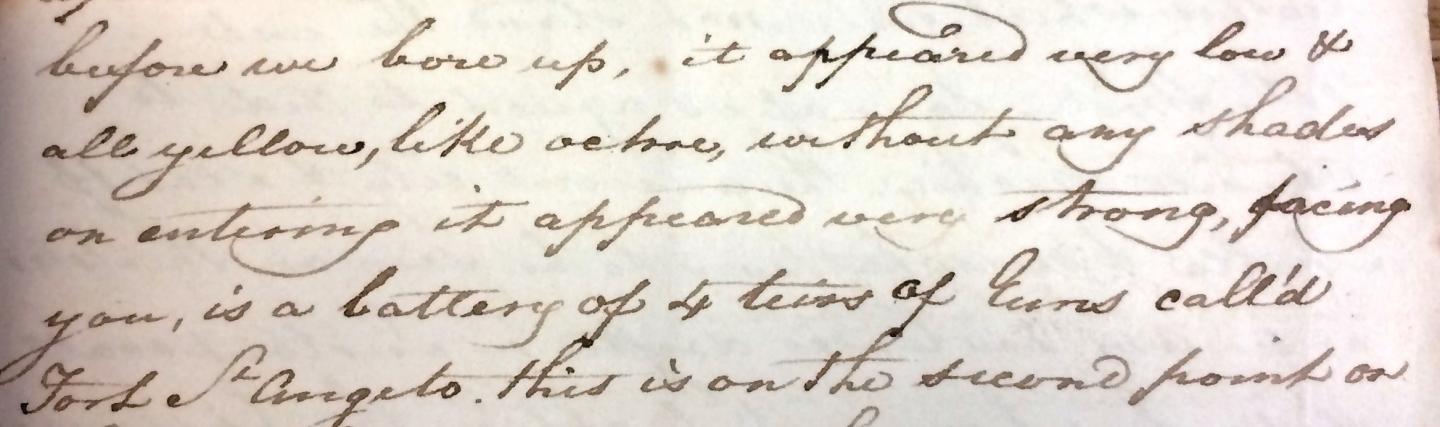 before we bore up, it appeared very low &
all yellow, like ochre, without any shades
on entering it appeared very strong, facing
you, is a battery of 4 teirs of Guns call'd
Fort St Angelo. this is on the second point on